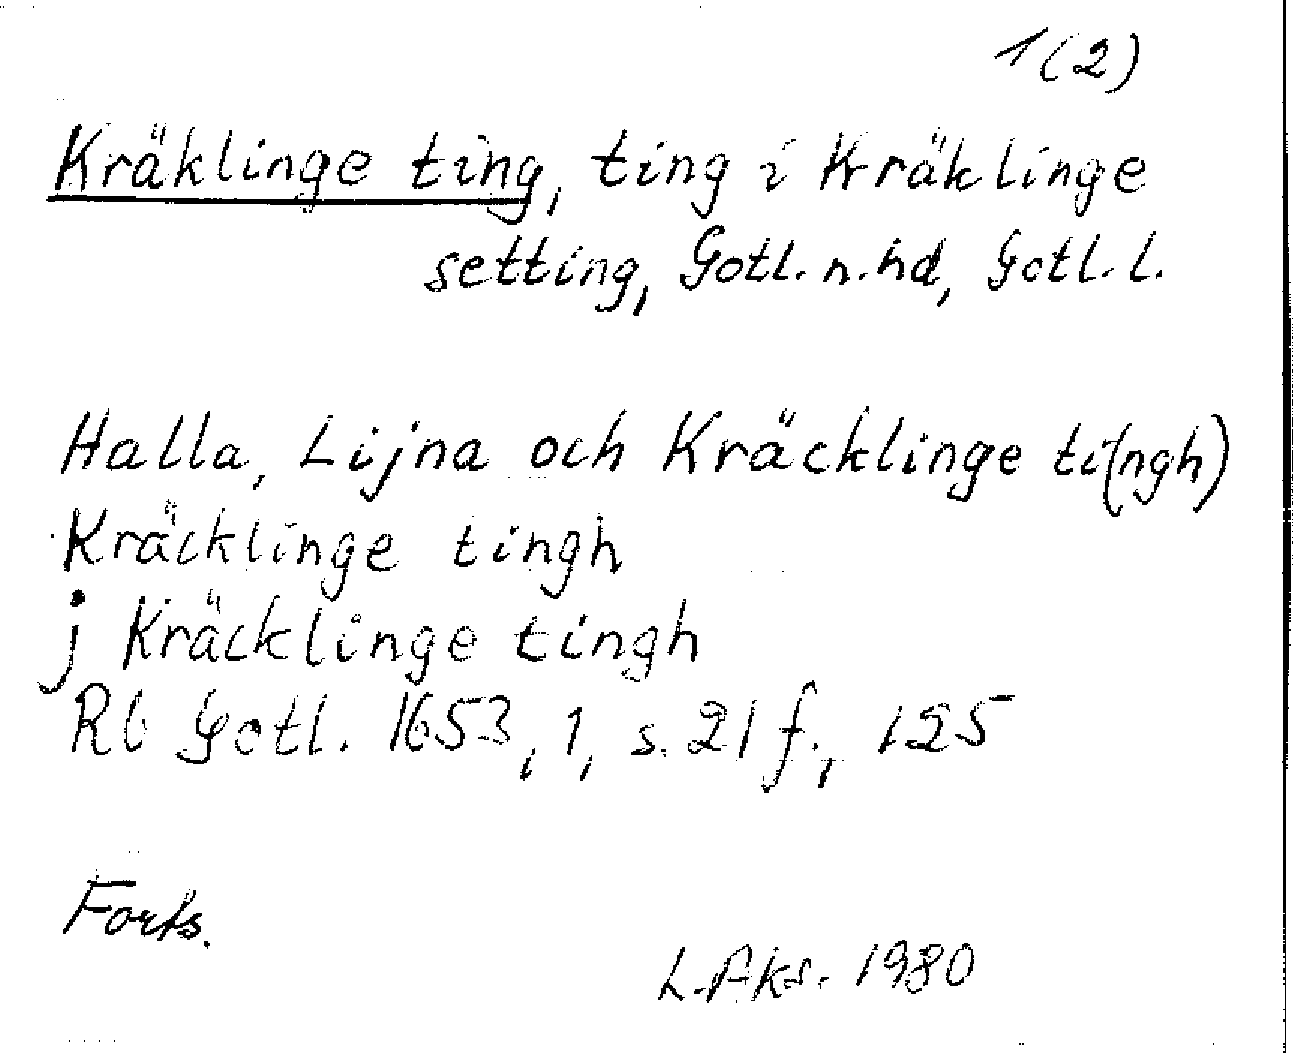 1(2)
Kräklinge ting, ting i Kräklinge
setting, Gotl. n. hd, Gotl. l.
Halla, Lijna och Kräcklinge ti(ngh)
Kräcklinge tingh
j Kräcklinge tingh
Rb Gotl. 1653, 1, s. 21 f., 125
Forts.
L. Aks. 1980